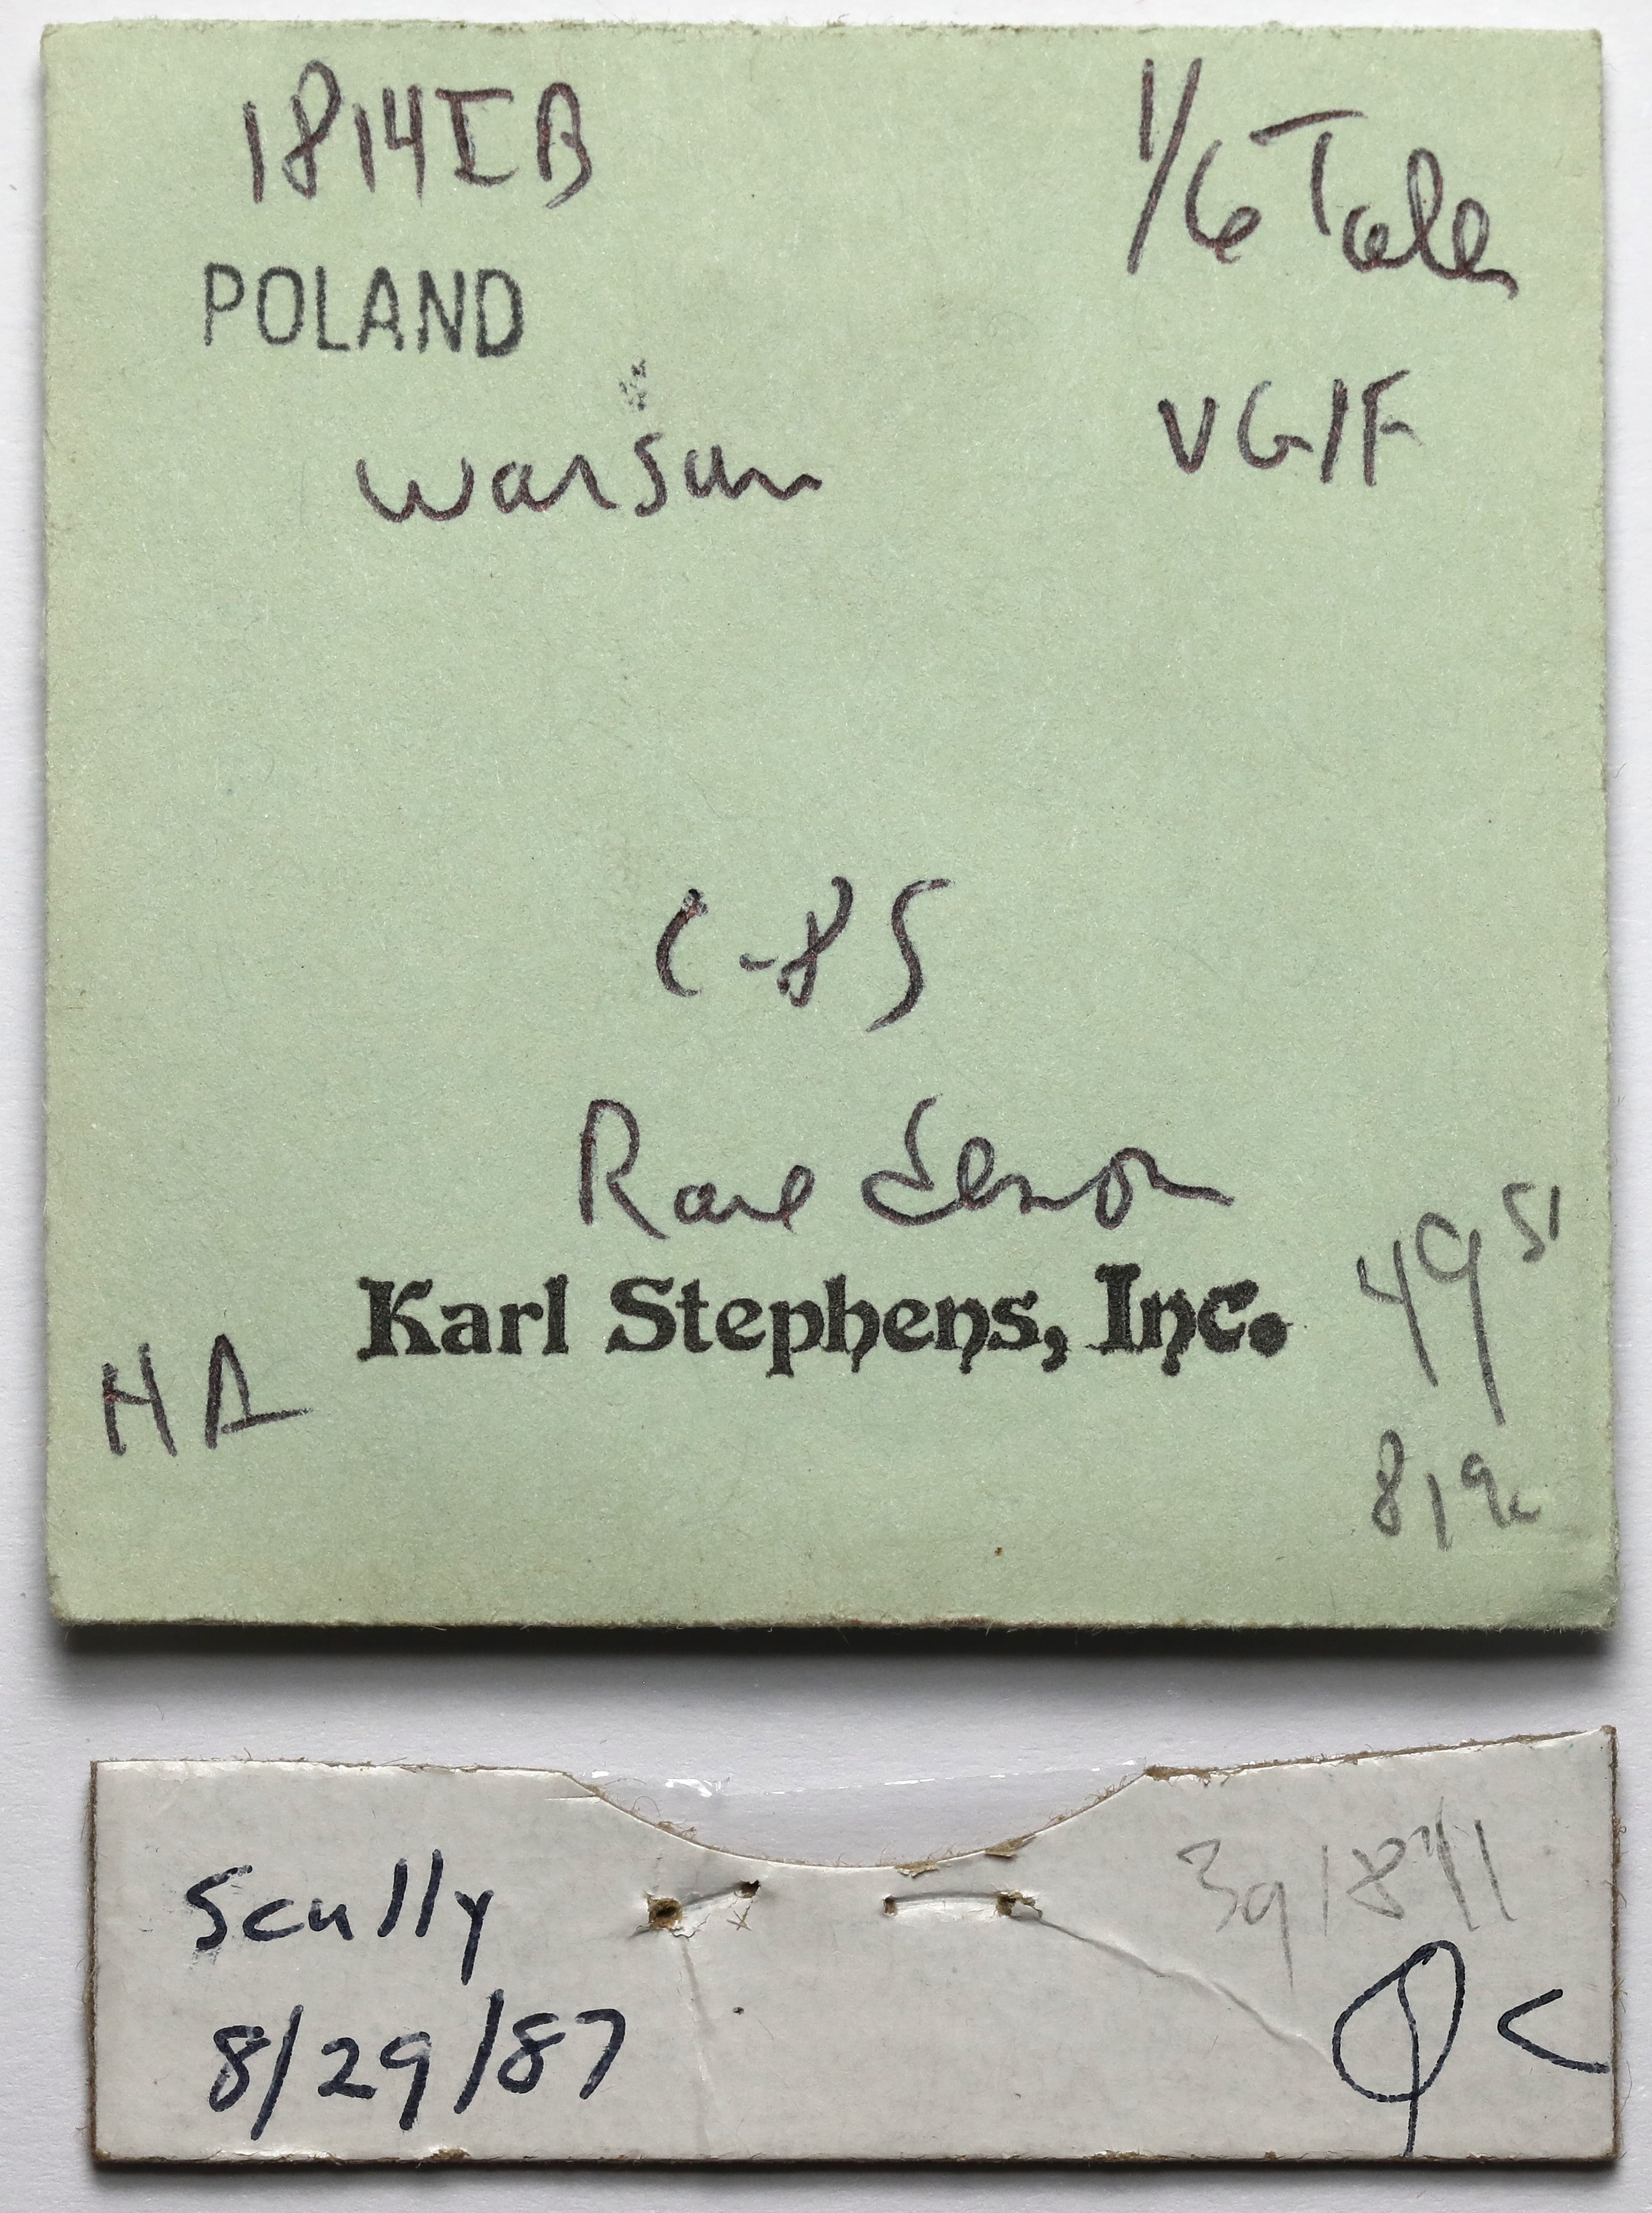 1814IB
1/6 Taler
POLAND
VG/F
Warsaw
C-85
Rare
Karl Stephens, Inc.
49 51
HA
Scully
8/29/87